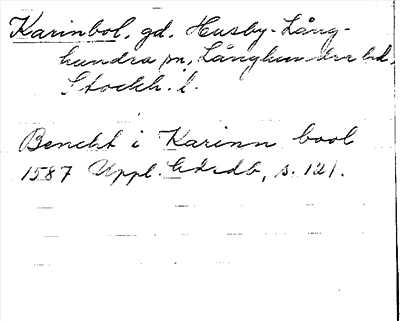 Karinbol, gd, Husby-Lång-
hundra sn, Långhundra hd,
Stockh. l.
Bencht i Karinn bool
1587 Uppl. hdrdb, s. 121.